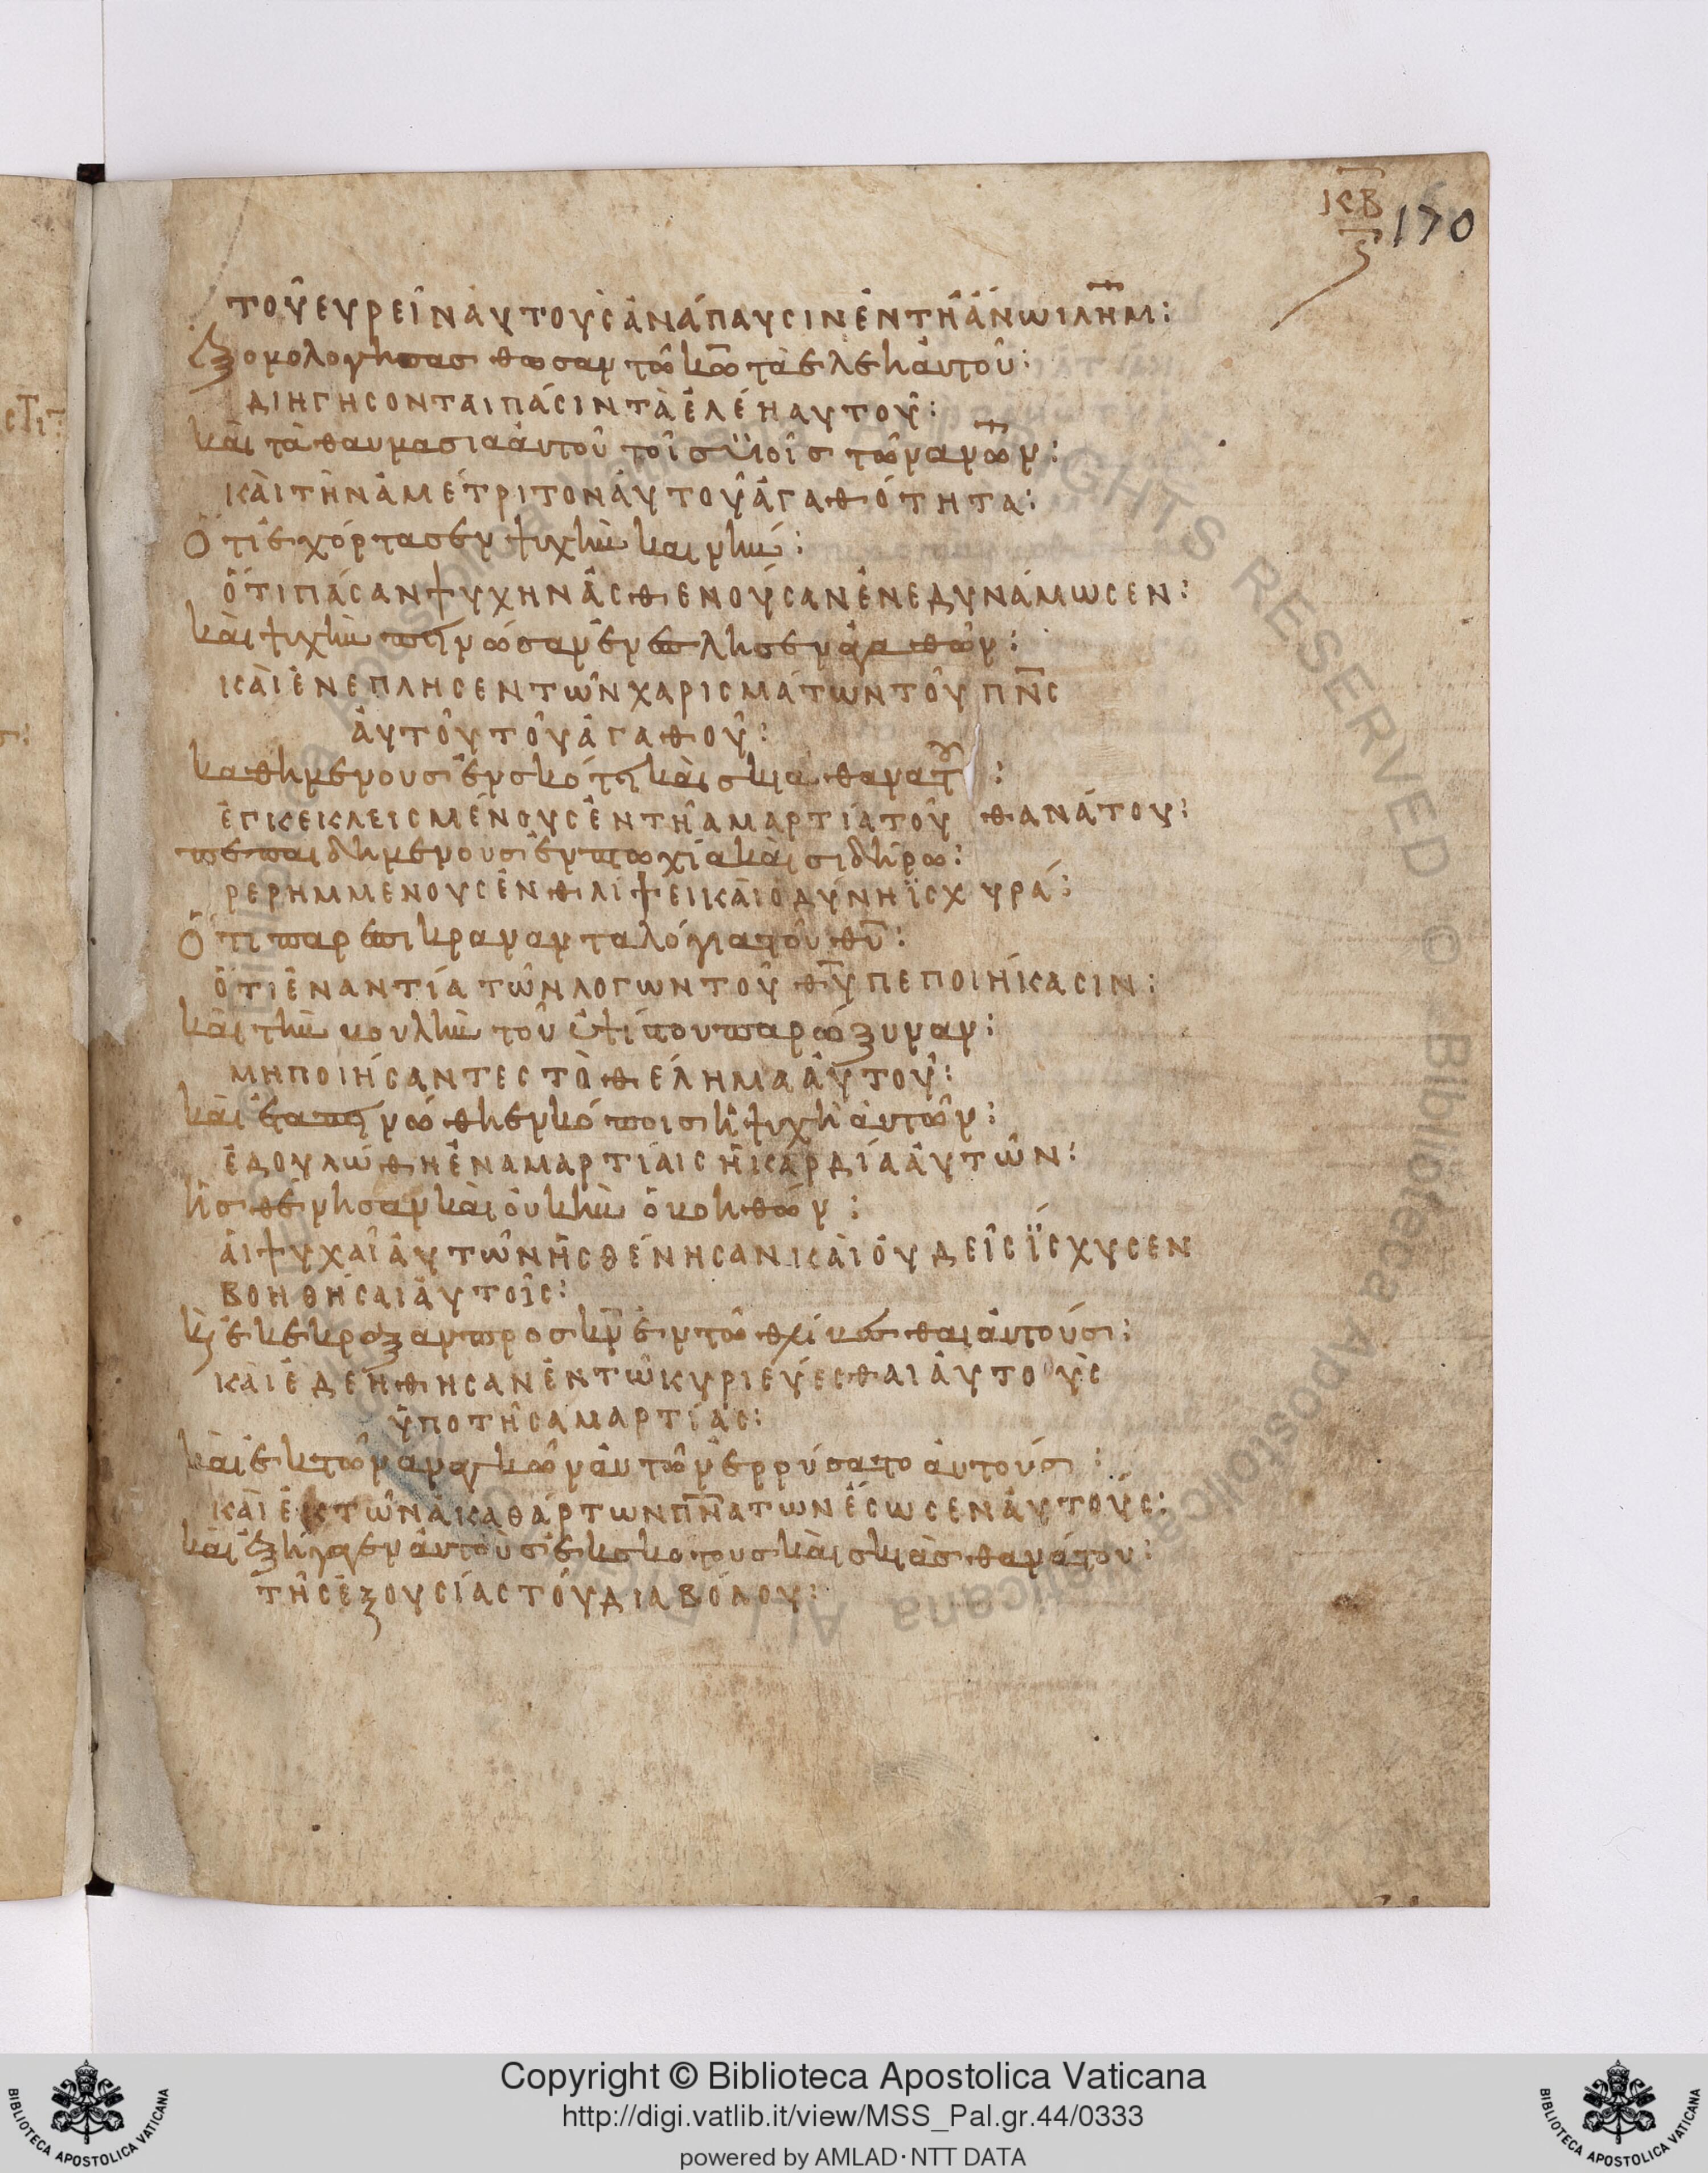 κβ
ς 170
cτι
ΤΟῦ ΕΥΡΕῖΝ ΑὐΤΟΥC ἀΝάΠΑΥCΙΝ ἐΝ Τῆ ἄΝΩ ΙΛΗΜ:
ἐξομολογησασθωσαν τῶ κω τὰ ἐλέη ἀυτοῦ:
ΔΙΗΓΗCΟΝΤΑΙ ΠάCΙΝ Τὰ ἐΛέΗ ΑΥΤΟῦ:
κὰι τὰ θαυμασια ἀυτοῦ τοῖσ ϋιοῖσ τῶν ανων:
ΚΑὶ ΤὴΝ ἀΜέΤΡΙΤΟΝ ἀΥΤΟῦ ἀΓΑΘόΤΗΤΑ:
ὅτι ἐχόρτασεν ψυχὴν καινήν:
ὅΤΙ ΠάCΑΝ ΨΥΧΗΝ ἀCΘΕΝΟύCΑΝ ἐΝΕΔΥΝάΜΩCΕΝ:
κὰι ψυχὴν πεινῶσαν ἐνέπλησεν ἀγαθῶν:
ΚΑὶ ἐΝΕΠΛΗCΕΝ ΤῶΝ ΧΑΡΙCΜάΤΩΝ ΤΟῦ ΠΝC
ἀΥΤΟῦ ΤΟῦ ἀΓΑΘΟῦ:
καθημενουσ ἐν σκότει κὰι σκια θανατου:
ἐΓΚΕΚΛΕΙCΜέΝΟΥC ἐΝ Τῆ ΑΜΑΡΤίΑ ΤΟῦ ΘΑΝάΤΟΥ:
πεπαιδημενουσ ἐν πτωχία κὰι σιδήρω:
ΡΕΡΗΜΜΕΝΟΥC ἐΝ ΘΛίΨΕΙ ΚΑὶ ὀΔύΝΗ ϊCΧΥΡά:
ὅτι παρεπικραναν τα λόγια τοῦ θυ:
ὅΤΙ ἐΝΑΝΤίΑ ΤῶΝ ΛΟΓΩΝ ΤΟῦ ΘΥ ΠΕΠΟΙΗΚΑCΙΝ:
κὰι τὴν βουλὴν τοῦ ὑψίστου παρώξυναν:
ΜΗ ΠΟΙήCΑΝΤΕC Τὸ ΘέΛΗΜΑ ἀΥΤΟῦ:
κὰι ἐταπεινώθη ἐν κόποισ ἡ ψυχὴ ἀυτῶν:
ἐΔΟΥΛώΘΗ ἐΝ ΑΜΑΡΤίΑΙC ἡ ΚΑΡΔίΑ ἀΥΤῶΝ:
ἠσθένησαν κὰι ὀυκ ἠν ὁ βοηθῶν:
ἁΙ ΨΥΧΑὶ ἀΥΤῶΝ ἠCΘέΝΗCΑΝ ΚΑὶ ὀΥΔΕῖC ΐCΧΥCΕΝ
ΒΟΗΘήCΑΙ ἀΥΤΟῖC:
κὰι ἐκέκραξαν προσ κν ἐν τῶ θλίβεσθαι ἀυτούσ:
ΚΑὶ ἐΔΕήΘΗCΑΝ ἐΝ Τῶ ΚΥΡΙΕύΕCΘΑΙ ἀΥΤΟὺC
ὑΠΟ ΤῆC ΑΜΑΡΤίΑC:
κὰι ἐκ τῶν αναγκῶν ἀυτῶν ἐρρύσατο ἀυτούσ:
ΚΑὶ ἐΚ ΤῶΝ ἀΚΑΘάΡΤΩΝ ΠΝΑΤΩΝ ἔCΩCΕΝ ἀΥΤΟύC:
κὰι ἐξήγαγεν ἀυτοὺσ ἐκ σκοτουσ κὰι σκιὰσ θανάτου:
ΤῆC ἐΞΟΥCίΑC ΤΟῦ ΔΙΑΒόΛΟΥ:
Copyright © Biblioteca Apostolica Vaticana
http://digi.vatlib.it/view/MSS_Pal.gr.44/0333
powered by AMLAD·NTT DATA
BIBLIOTECA APOSTOLICA VATICANA
BIBLIOTECA APOSTOLICA VATICANA